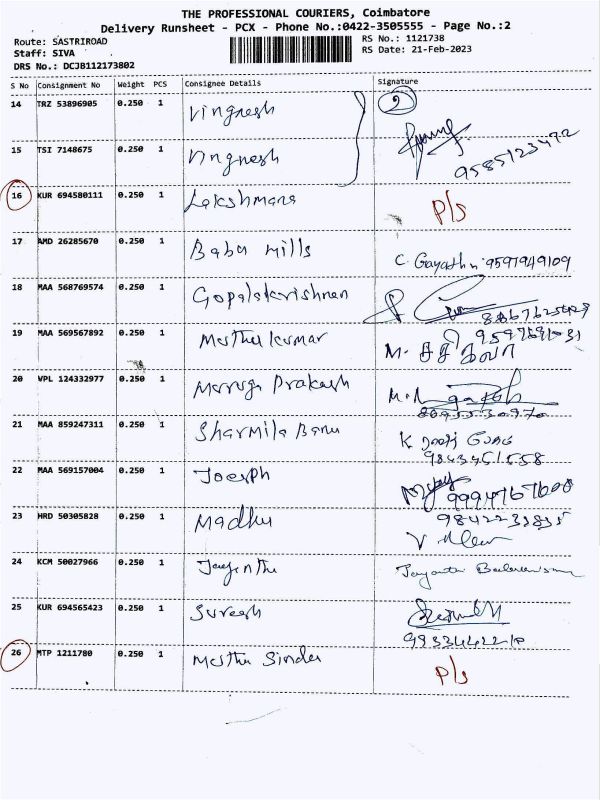 THE PROFESSIONAL COURIERS, Coimbatore
Delivery Runsheet - PCX - Phone No.:0422-3505555 - Page No.:2
Route: SASTRIROAD RS No.: 1121738
Staff: SIVA RS Date: 21-Feb-2023
DRS No.: DCJB112173802
S No Consignment No Weight PCS Consignee Details Signature
14 TRZ 53896905 0.250 1 Vingnesh 2
15 TSI 7148675 0.250 1 Vingnesh 9585123472
16 KUR 694580111 0.250 1 Lakshmana P/s
17 AMD 26285670 0.250 1 Babu Mills C. Gayathri 9597949109
18 MAA 568769574 0.250 1 Gopalakrishnan
19 MAA 569567892 0.250 1 Muthu Kumar M. சசிகலா
20 VPL 124332977 0.250 1 Muruga Prakash
21 MAA 859247311 0.250 1 Sharmila Banu K
9843451558
22 MAA 569157004 0.250 1 Joesph 9994767608
23 HRD 50305828 0.250 1 Madhu
24 KCM 50027966 0.250 1 Jayinthi
25 KUR 694565423 0.250 1 Suresh
26 MTP 1211780 0.250 1 P/s